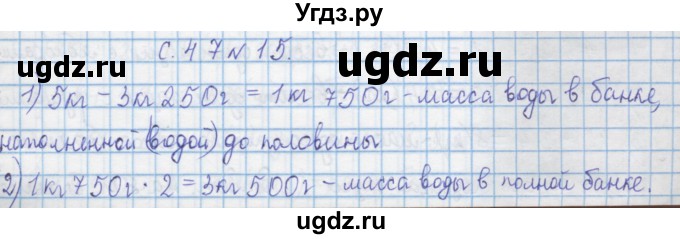 Угдз.ру
с. 47 № 15.
ugdz.ru
ugdz.ru
ugdz.ru
1) 5кг - 3кг 250г = 1кг 750г - масса воды в банке,
наполненной (водой) до половины
2) 1кг 750г · 2 = 3кг 500г - масса воды в полной банке.
ugdz.ru
ugdz.ru